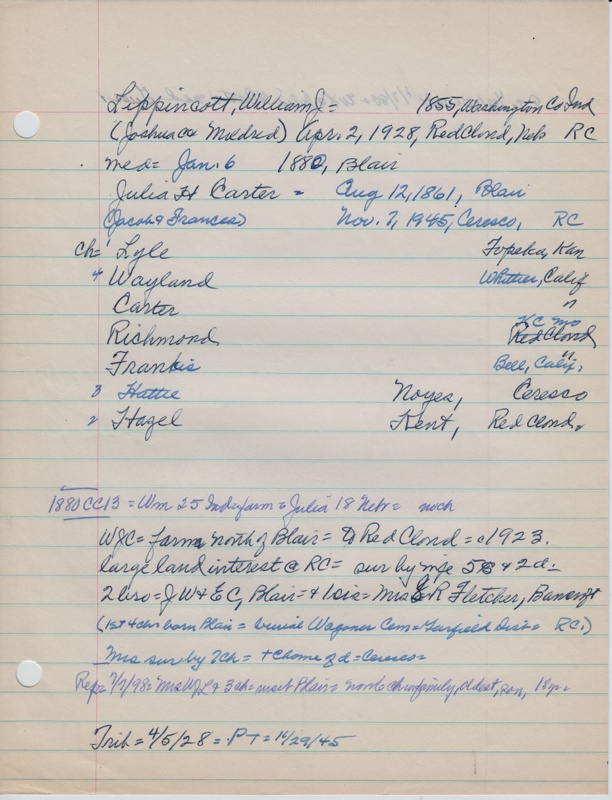 Lippincott, William J= 1855, Washington Co Ind
(Joshua & Mildred) Apr. 2, 1928, Red Cloud, Neb RC
med= Jan. 6 1880, Blair
Julia H Carter = Aug 12, 1861, Blair
(Jacob & Frances) Nov. 7, 1945, Ceresco, RC
ch= Lyle Topeka, Kan
4 Wayland Whittier, Calif
Carter "
KC Mo
Richmond Red Cloud
Francis Bell, Calif.
3 Hattie Noyes, Ceresco
2 Hazel Kent, Red Cloud.
1880 CC 13 = Wm 25 Ind farm = Julia 18 Nebr = noch
W&C= farm north of Blair = to Red Cloud = c1923.
large land interest @ RC= sur by wife 5s & 2d=
2 bro= J W & E C, Blair= & 1 sis= Mrs E R Fletcher, Bancroft
(1st 4 chs born Blair = burial Wagoner Cem= Garfield Dist= RC.)
Mrs sur by 7ch= + @ home of d= Ceresco=
Rep= 7/7/98= Mrs WJL & 3 ch= visit Blair= family, oldest, son, 18 yr=
Trib= 4/5/28 = PT= 11/29/45